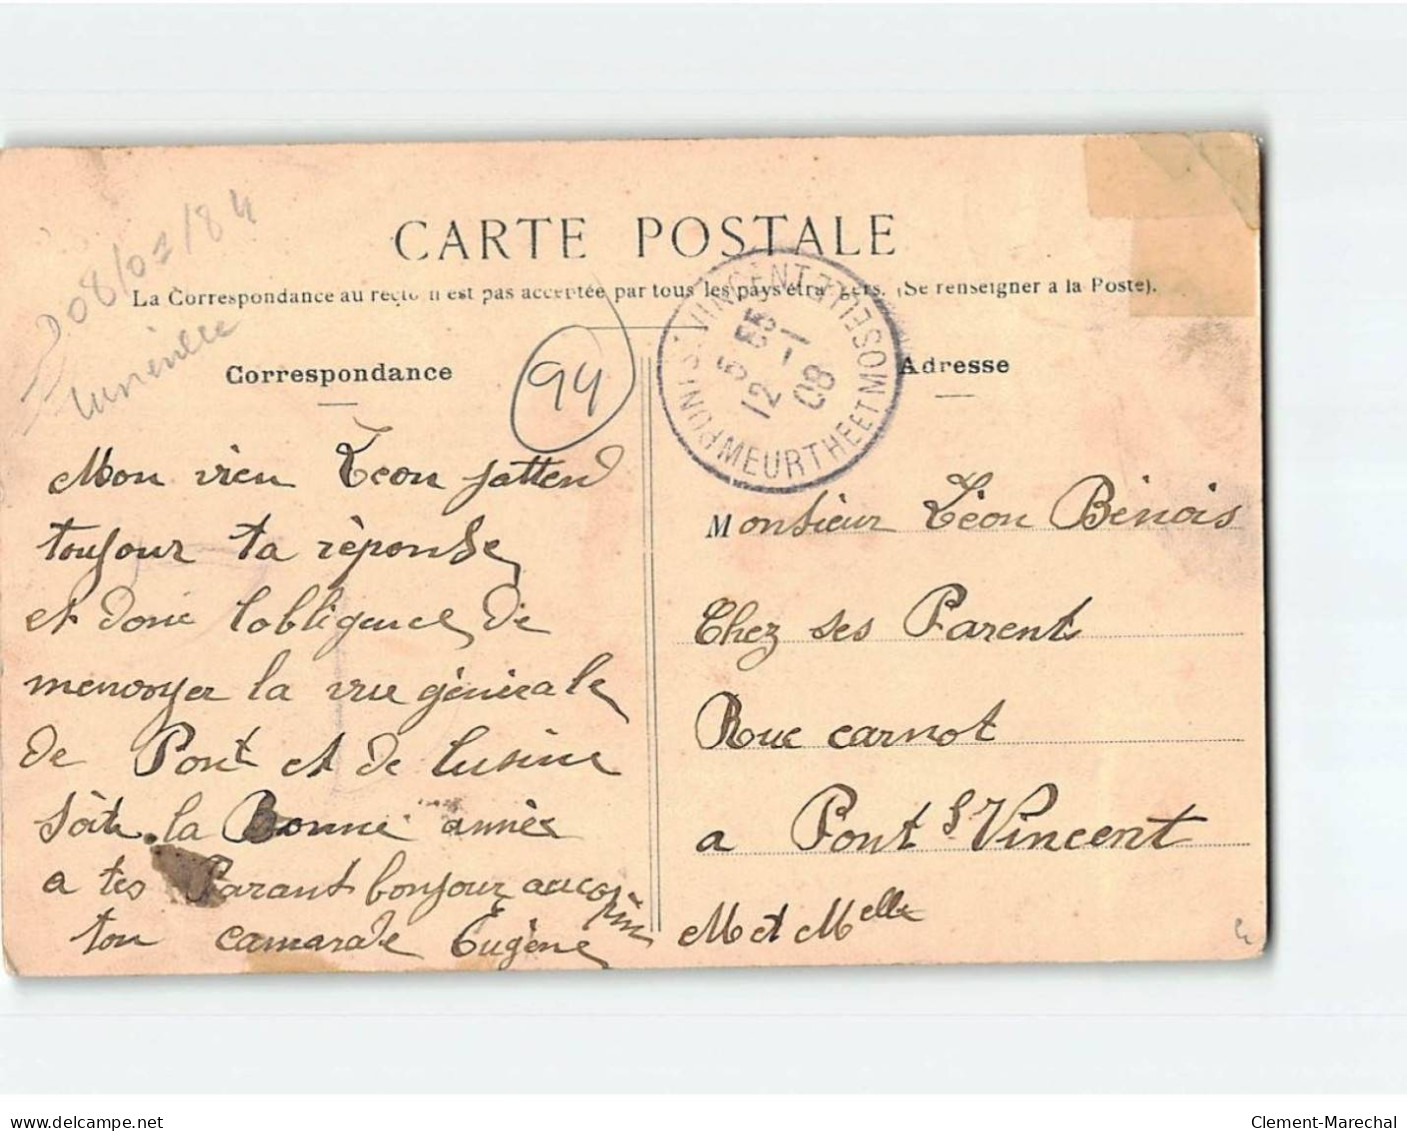 D 08/07/84
Lunéville
CARTE POSTALE
La Correspondance au recto n'est pas acceptée par tous les pays étrangers. (Se renseigner à la Poste).
Correspondance
94
PONT ST VINCENT
5 55
12 - 1
08
MEURTHE ET MOSELLE
Adresse
Mon vieu Léon jattend
toujour ta réponse
et donc lobligence de
menvoyer la vue génerale
de Pont et de lusine
la Bonne année
a tes Parant bonjour au copin
ton camarade Eugène
Monsieur Léon Benois
Chez ses Parent
Rue carnot
a Pont St Vincent
M et Melle
www.delcampe.net
Clement-Marechal